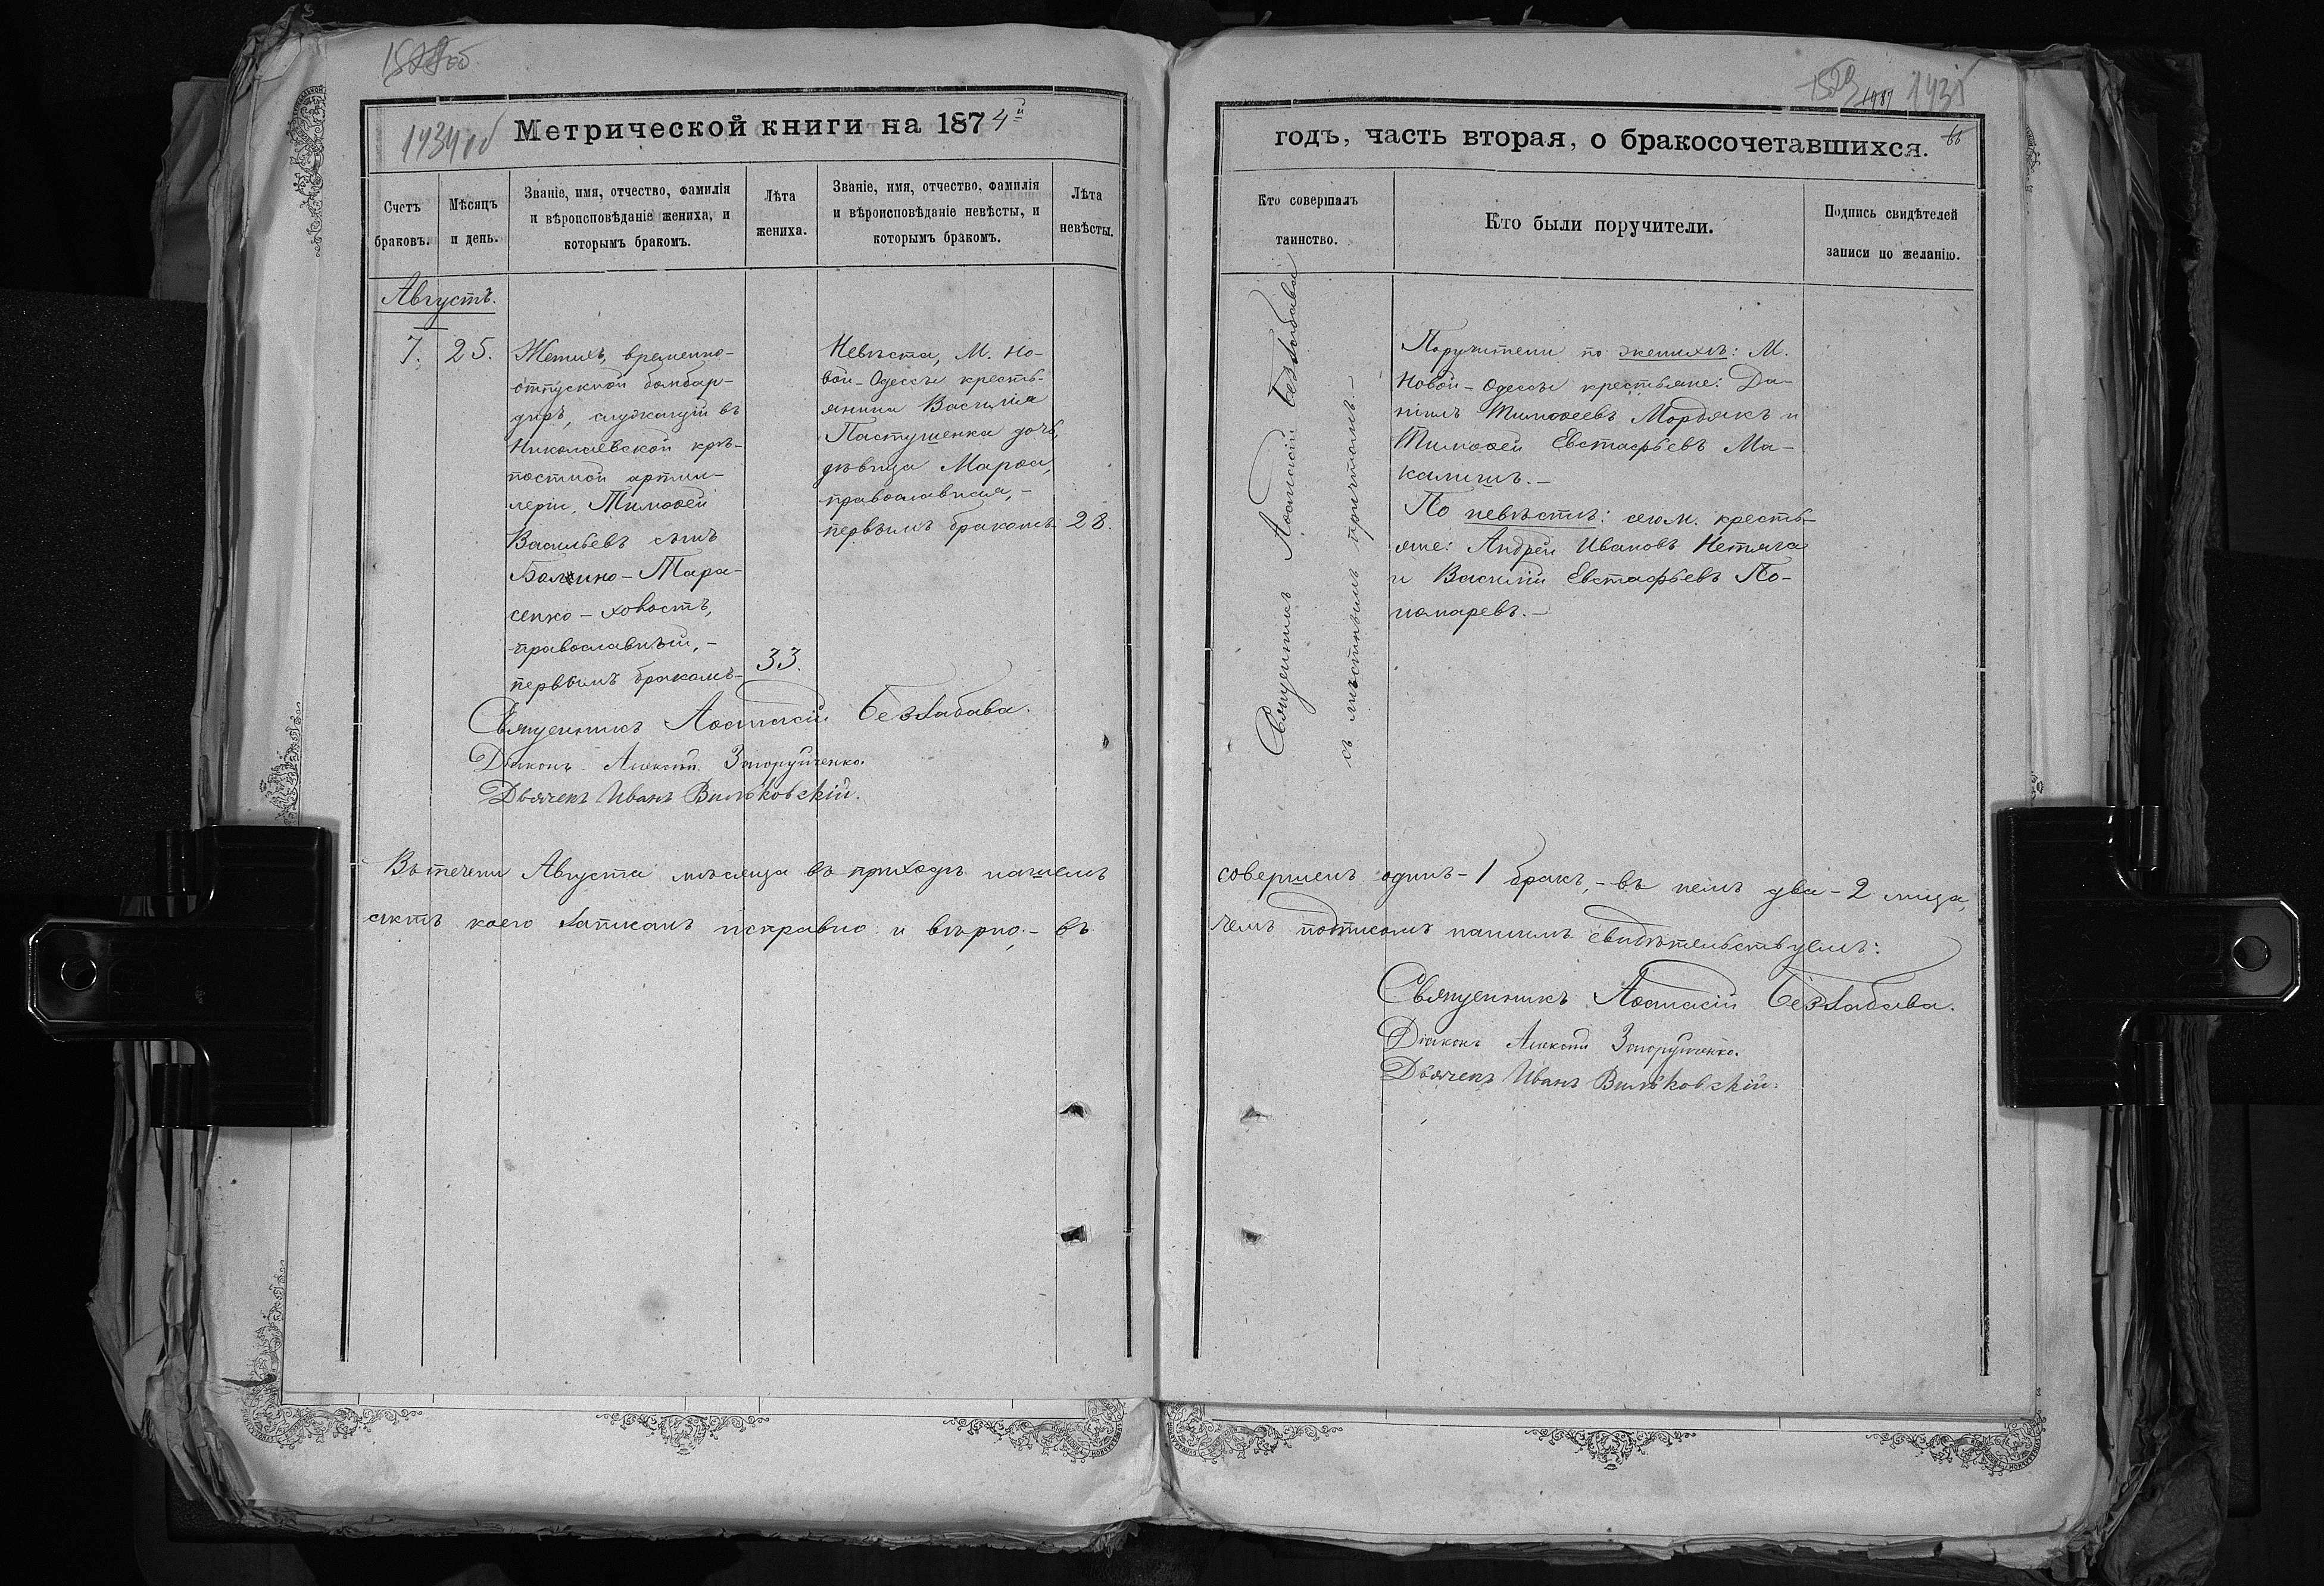 1434 об
Метрической книги на 1874й
Счетъ браковъ.
Мѣсяцъ и день.
Званіе, имя, отчество, фамилія и вѣроисповѣданіе жениха, и которымъ бракомъ.
Лѣта жениха.
Званіе, имя, отчество, фамилія и вѣроисповѣданіе невѣсты, и которымъ бракомъ.
Лѣта невѣсты.
Августъ.
7.
25.
Женихъ, временно-
отпускной бомбар-
диръ, служащій въ
Николаевской крѣ-
постной артил-
леріи, Тимоѳей
Васильевъ сынъ
Тара-
сенко-ховостъ,
православный,-
первымъ бракомъ-
33.
Невѣста, М. Но-
вой-Одессы кресть-
янина Василія
Пастушенка дочь,
дѣвица Марѳа,
православная,-
первымъ бракомъ.
28.
Священникъ Аѳанасій Беззабава.
Діаконъ Алексѣй
Дьячекъ Иванъ Вильковскій.
Въ теченіи Августа мѣсяца въ приходѣ нашемъ
актъ коего записанъ исправно и вѣрно,- въ
1435
66
годъ, часть вторая, о бракосочетавшихся.
Кто совершалъ таинство.
Кто были поручители.
Подпись свидѣтелей записи по желанію.
Священникъ Аѳанасій Беззабава
съ мѣстнымъ причтомъ.-
Поручители по женихѣ: М.
Новой-Одессы крестьяне: Да-
ніилъ Тимоѳеевъ Мордякъ и
Тимоѳей Евстафьевъ Ма-
калишъ.-
По невѣстѣ: сего м. кресть-
яне: Андрей Ивановъ Нетяга
и Василій Евстафьевъ По-
номаревъ.-
совершенъ одинъ-1 бракъ,- въ немъ два-2 лица,
чемъ подписомъ нашимъ свидѣтельствуемъ:
Священникъ Аѳанасій Беззабава.
Діаконъ Алексѣй
Дьячекъ Иванъ Вильковскій.